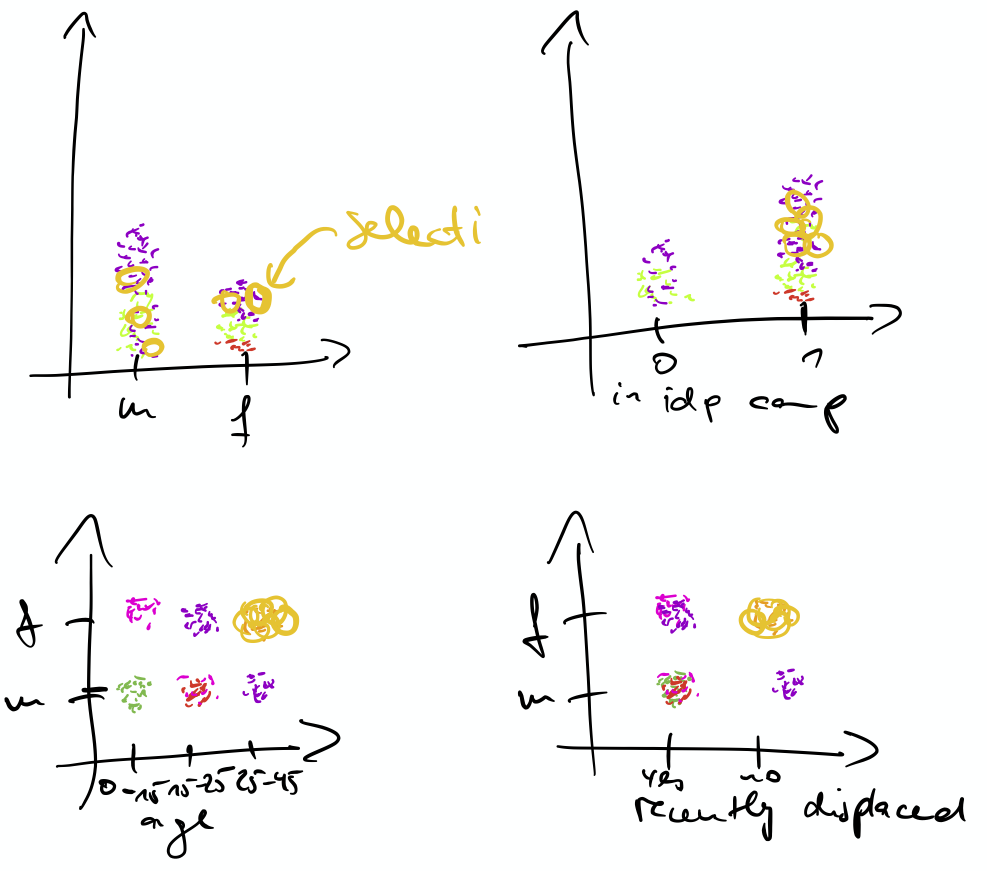 selecti
m f
0 1
in idp camp
f
m
0-15 15-25 25-45
age
f
m
yes no
recently displaced